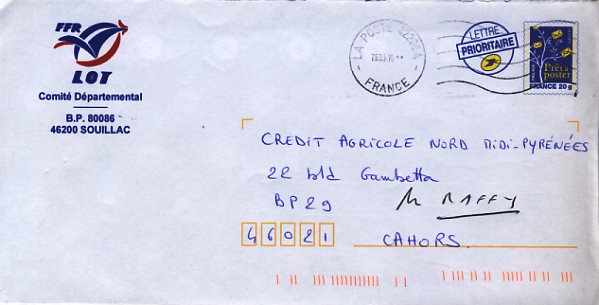 FFR
LOT
Comité Départemental
B.P. 80086
46200 SOUILLAC
FRANCE
LETTRE
PRIORITAIRE
Prêt à
poster
FRANCE 20 g
CREDIT AGRICOLE NORD MIDI-PYRÉNÉES
22 bld Gambetta
BP 29 M RAFFY
46021 CAHORS